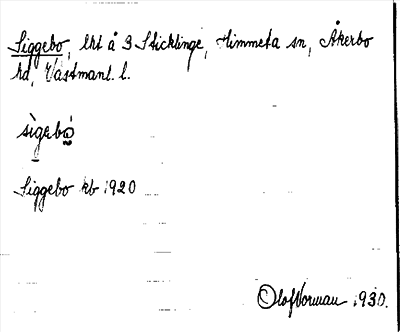 Siggebo, lht å 3 Sticklinge, Himmeta sn, Åkerbo
hd, Västmanl. l.
sìgebò
Siggebo kb 1920
Olof Norman 1930.